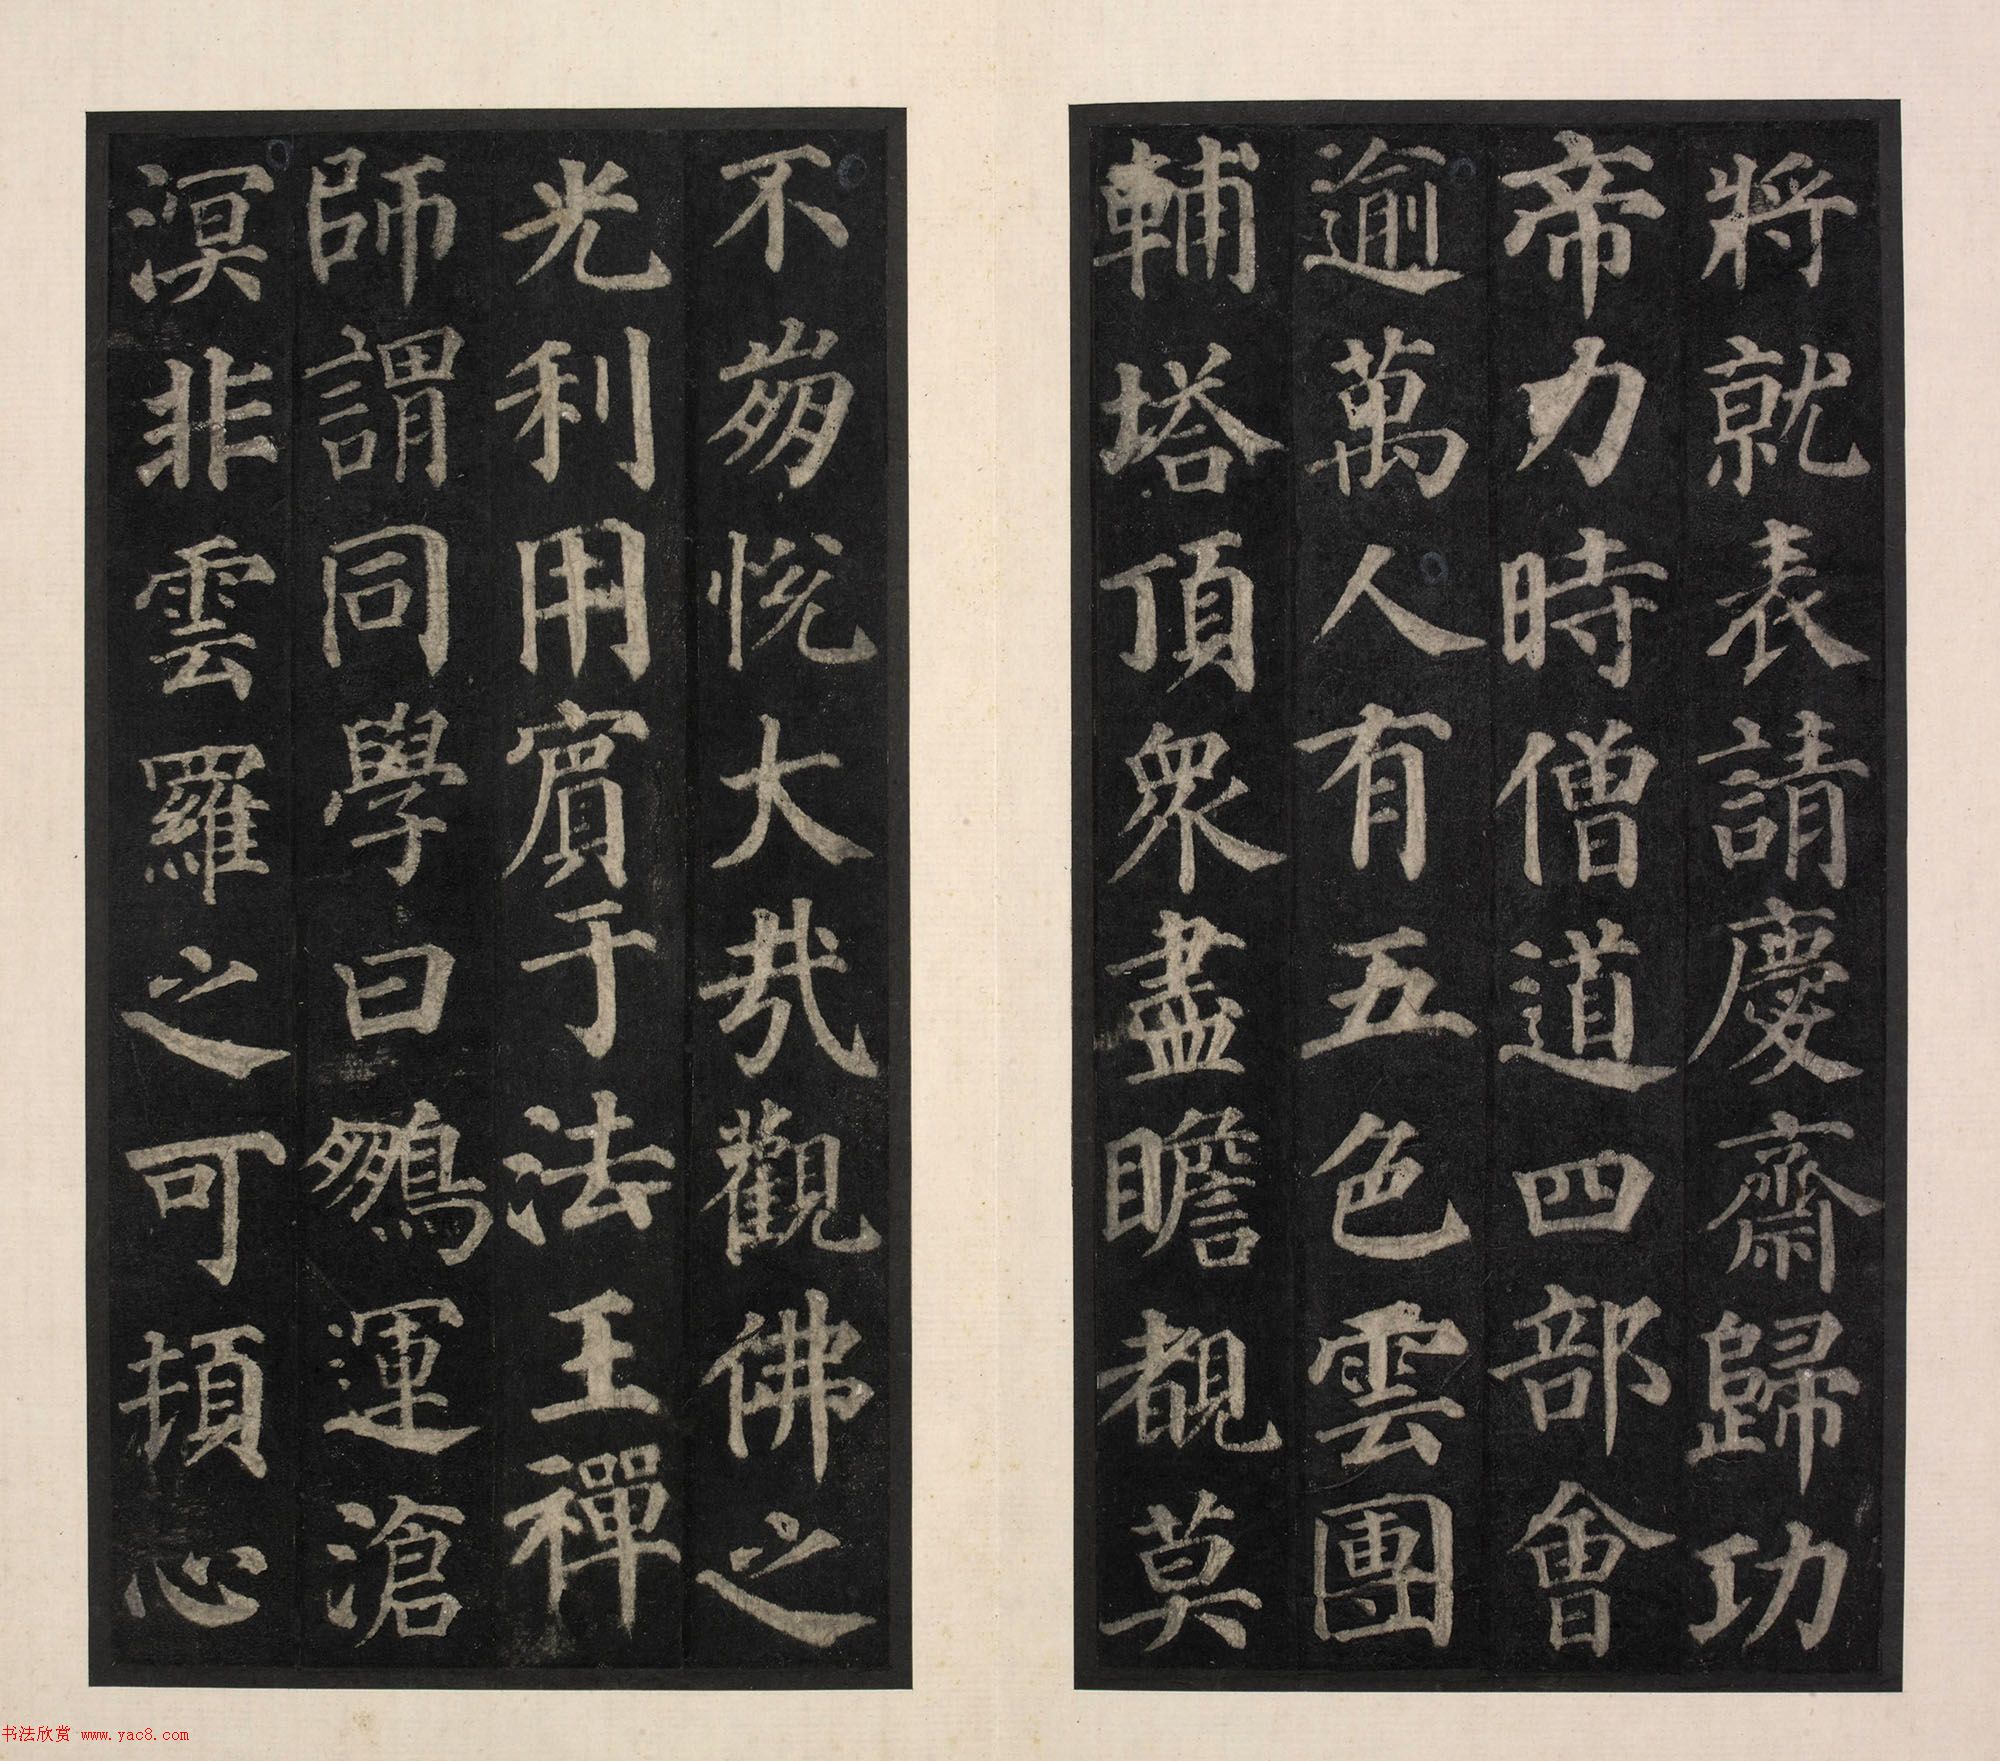 將就表請慶齋歸功
帝力時僧道四部會
逾萬人有五色雲團
輔塔頂眾盡瞻覩莫
不崩悅大哉觀佛之
光利用賓于法王禪
師謂同學曰鵬運滄
溟非雲羅之可頓心
书法欣赏 www.yac8.com